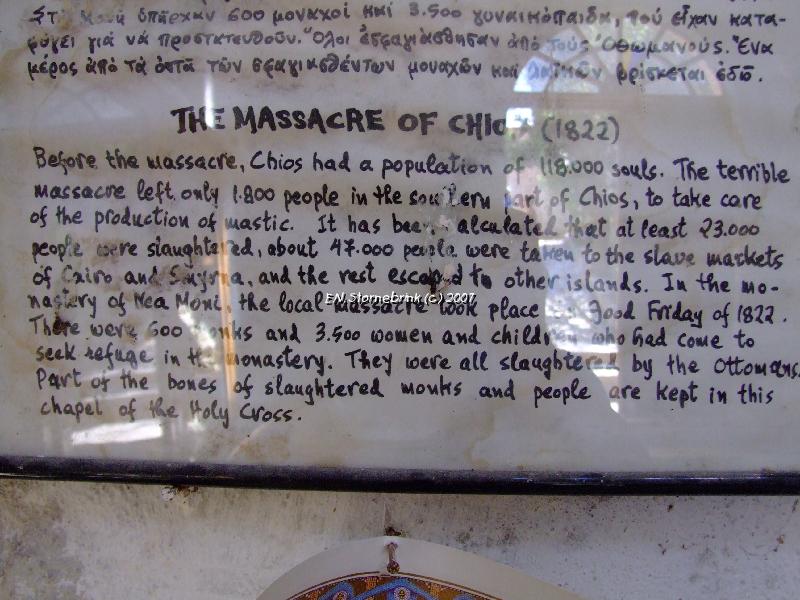 Στη Μονή ὑπῆρχαν 600 μοναχοί καί 3.500 γυναικόπαιδα, πού εἶχαν κατα-
φύγει γιά νά προστατευθοῦν. Ὅλοι ἐσφαγιάσθησαν ἀπό τούς Ὀθωμανούς. Ἕνα
μέρος ἀπό τά ὀστᾶ τῶν σφαγιασθέντων μοναχῶν καί λαϊκῶν βρίσκεται ἐδῶ.
THE MASSACRE OF CHIOS (1822)
Before the massacre, Chios had a population of 118.000 souls. The terrible
massacre left only 1.800 people in the southern part of Chios, to take care
of the production of mastic. It has been calculated that at least 23.000
people were slaughtered, about 47.000 people were taken to the slave markets
of Cairo and Smyrna, and the rest escaped to other islands. In the mo-
nastery of Nea Moni, the local massacre took place on Good Friday of 1822.
There were 600 monks and 3.500 women and children who had come to
seek refuge in the monastery. They were all slaughtered by the Ottomans.
Part of the bones of slaughtered monks and people are kept in this
chapel of the Holy Cross.
E.N. Stornebrink (c) 2007